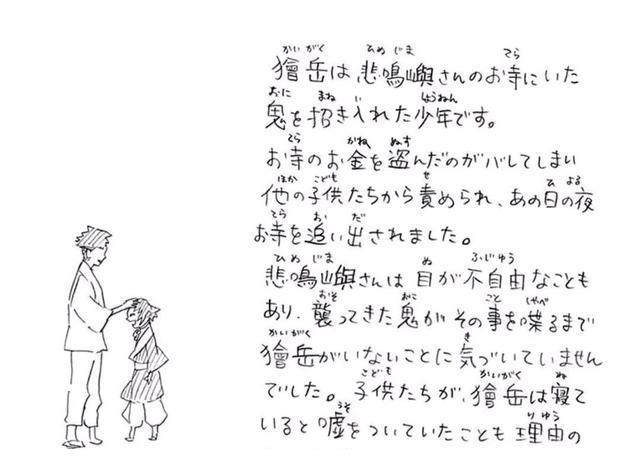 獪岳は悲鳴嶼さんのお寺にいた
鬼を招き入れた少年です。
お寺のお金を盗んだのがバレてしまい
他の子供たちから責められ、あの日の夜
お寺を追い出されました。
悲鳴嶼さんは目が不自由なことも
あり、襲ってきた鬼がその事を喋るまで
獪岳がいないことに気づいていません
でした。子供たちが、獪岳は寝て
いると嘘をついていたことも理由の